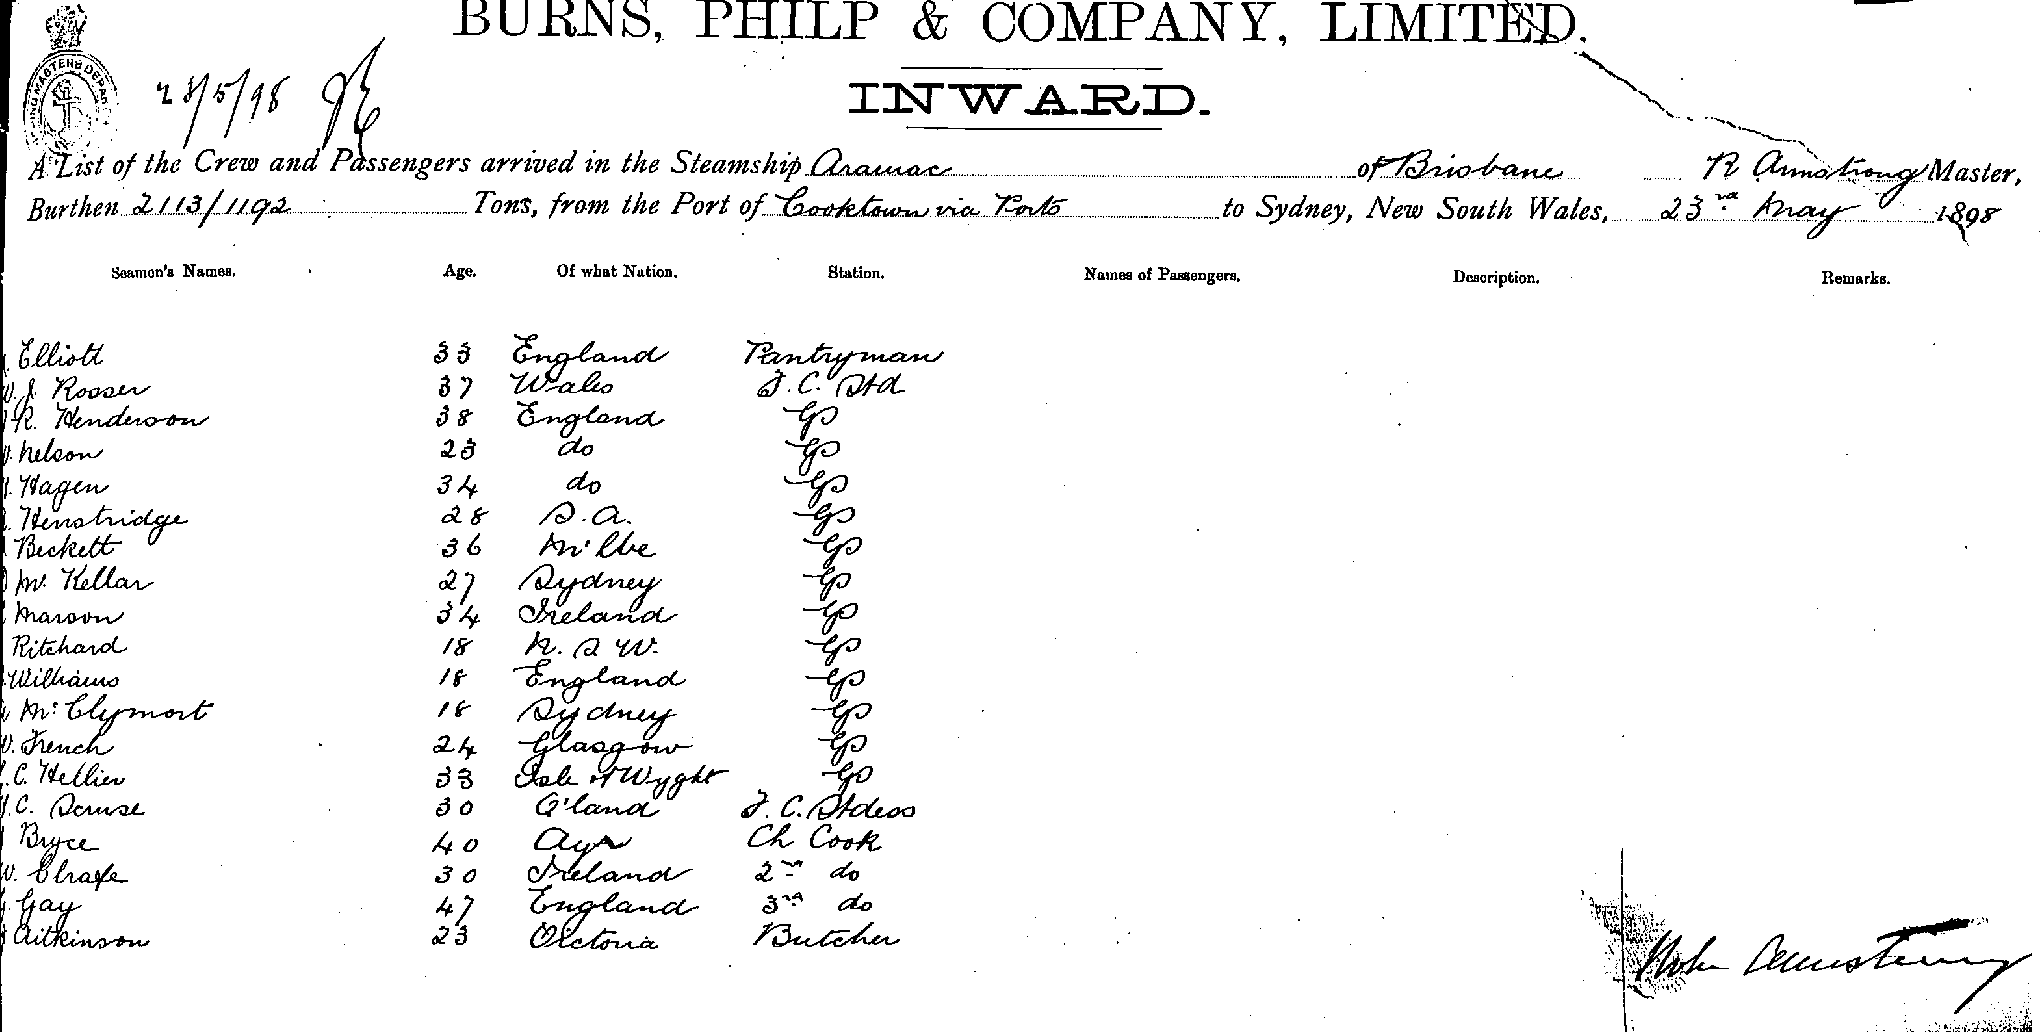 BURNS, PHILP & COMPANY, LIMITED.
INWARD.
23/5/98
A List of the Crew and Passengers arrived in the Steamship Aramac of Brisbane R Armstrong Master,
Burthen 2113/1192 Tons, from the Port of Cooktown via Ports to Sydney, New South Wales, 23rd May 1898
Seamen's Names. Age. Of what Nation. Station. Names of Passengers. Description. Remarks.
Elliott 33 England Pantryman
W. J. Rosser 37 Wales F. C. Std
R. Henderson 38 England Do
Nelson 23 do Do
Hagen 34 do Do
Henstridge 28 S.A. Do
Beckett 36 Melbe Do
Mc Kellar 27 Sydney Do
Marson 34 Ireland Do
Ritchard 18 N. S W. Do
Williams 18 England Do
Mc Clymort 18 Sydney Do
W. French 24 Glasgow Do
C. Hellier 33 Isle of Wyght Do
C. Scruse 30 Q'land F. C. Stdess
Bryce 40 Ayr Ch Cook
W. 30 Ireland 2nd do
Gay 47 England 3rd do
Aitkinson 23 Victoria Butcher
Armstrong